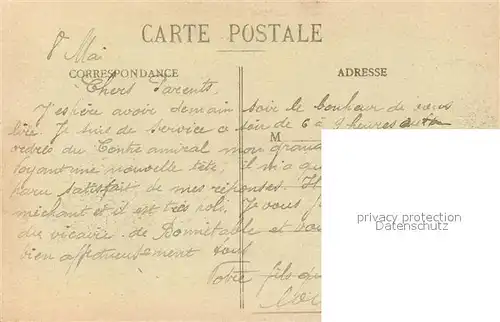 CARTE POSTALE
8 Mai
CORRESPONDANCE
ADRESSE
Chers Parents.
J'espère avoir demain soir le bonheur de vous
lire. Je suis de service ce soir de 6 à 9 heures aux
M
ordres du Contre amiral mon grand
Voyant une nouvelle tête, il m'a
paru satisfait de mes réponses. Il
méchant et il est très poli. Je vous
du vicaire de Bonnétable et vous
bien affectueusement tous
Votre fils qui
privacy protection
Datenschutz